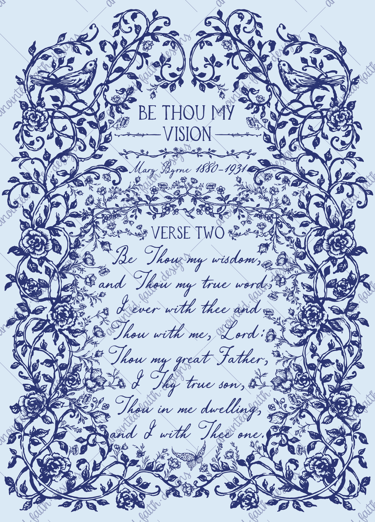 BE THOU MY
VISION
Mary Byrne 1880-1931
VERSE TWO
Be Thou my wisdom,
and Thou my true word,
I ever with thee and
Thou with me, Lord:
Thou my great Father,
I Thy true son,
Thou in me dwelling,
and I with Thee one.